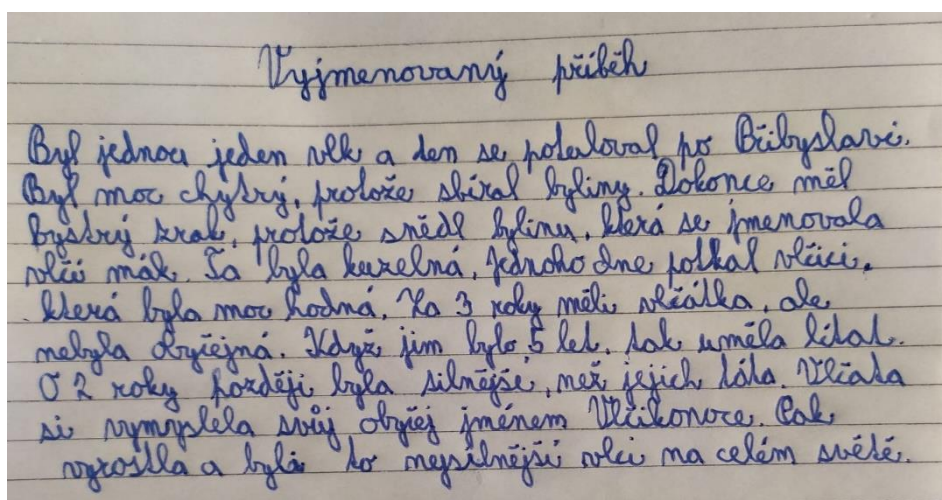 Vyjmenovaný příběh
Byl jednou jeden vlk a ten se potuloval po Přibyslavi.
Byl moc chytrý, protože sbíral byliny. Dokonce měl
bystrý zrak, protože snědl bylinu, která se jmenovala
vlčí mák. Ta byla kuzelná. Jednoho dne potkal vlčici,
která byla moc hodná. Za 3 roky měli vlčátka, ale
nebyla obyčejná. Když jim bylo 5 let, tak uměla lítat.
O 2 roky později byla silnější, než jejich táta. Vlčata
si vymyslela svůj obyčej jménem Vlčikonoce. Pak
vyrostla a byli to nejsilnější vlci na celém světě.